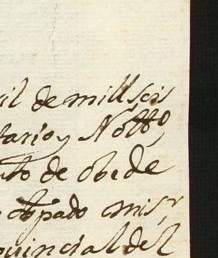 il de mill seis
tario y Notto
to de obede
obpado misr
ouincial del